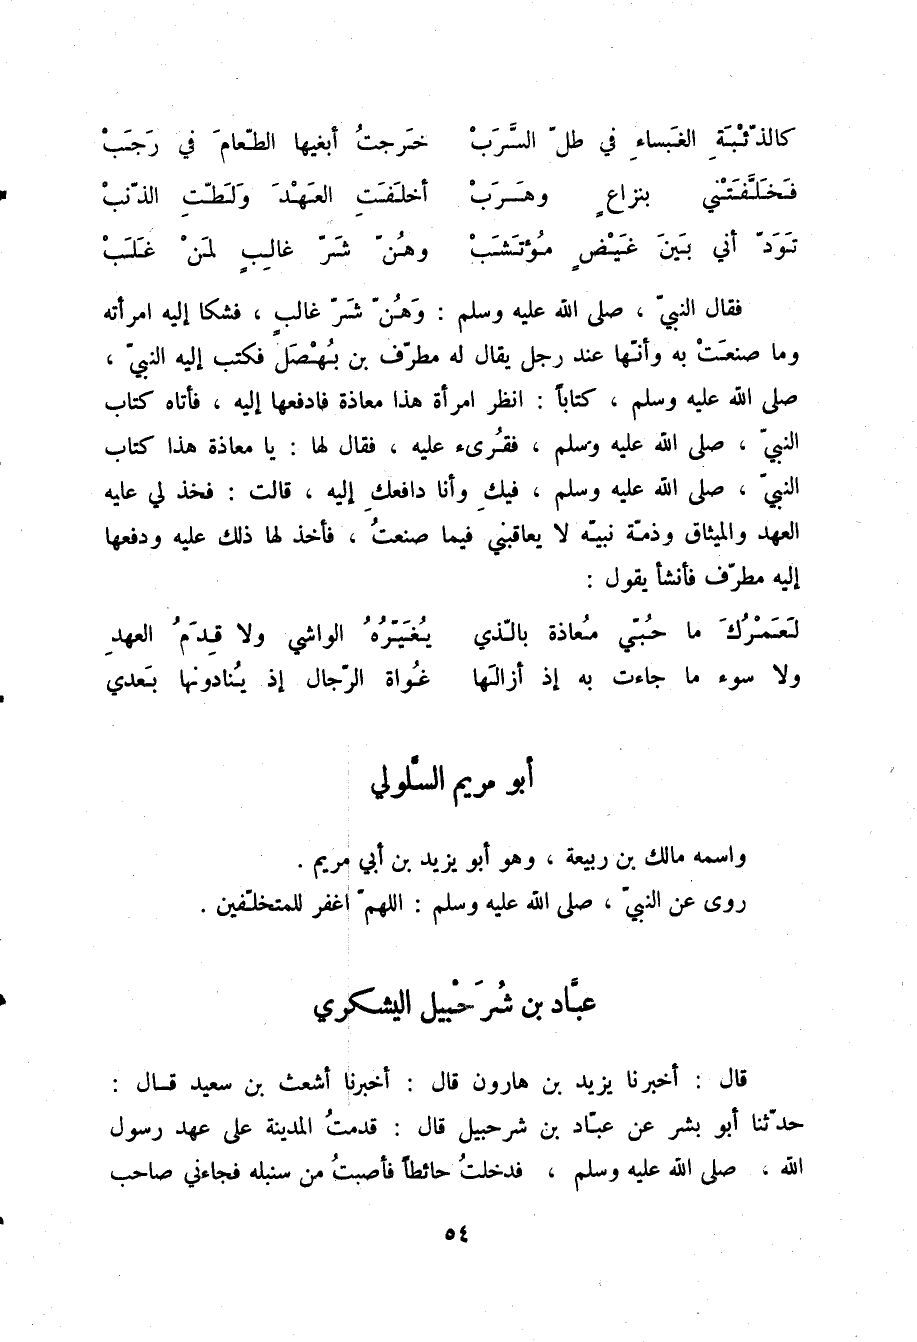 كالذّئْبَةِ الغَبساءِ في طلّ السَّرَبْ خَرَجتُ أبغيها الطّعامَ في رَجَبْ
فَخَلَّفَتْني بنزاعٍ وهَرَبْ أخلَفَتِ العَهْدَ وَلَطّتِ الذّنبْ
تَوَدّ أني بَينَ غَيْضٍ مُؤتَشَبْ وهُنّ شَرّ غالِبٍ لمَنْ غَلَبْ
فقال النبيّ ، صلى الله عليه وسلم : وَهُنّ شَرّ غالبٍ ، فشكا إليه امرأته
وما صنعَتْ به وأنّها عند رجل يقال له مطرّف بن بُهْصَل فكتب إليه النبيّ ،
صلى الله عليه وسلم ، كتاباً : انظر امرأة هذا معاذة فادفعها إليه ، فأتاه كتاب
النبيّ ، صلى الله عليه وسلم ، فقُرىء عليه ، فقال لها : يا معاذة هذا كتاب
النبيّ ، صلى الله عليه وسلم ، فيكِ وأنا دافعكِ إليه ، قالت : فخذ لي عليه
العهد والميثاق وذمّة نبيّه لا يعاقبني فيما صنعتُ ، فأخذ لها ذلك عليه ودفعها
إليه مطرّف فأنشأ يقول :
لَعَمْرُكَ ما حُبّي مُعاذة بالّذي يُغَيّرُهُ الواشي ولا قِدَمُ العهدِ
ولا سوء ما جاءت به إذ أزالَها غُواة الرّجال إذ يُنادونها بَعدي
أبو مريم السَّلولي
واسمه مالك بن ربيعة ، وهو أبو يزيد بن أبي مريم .
روى عن النبيّ ، صلى الله عليه وسلم : اللهمّ اغفر للمتخلّفين .
عبَّاد بن شُرَحْبيل اليشكري
قال : أخبرنا يزيد بن هارون قال : أخبرنا أشعث بن سعيد قال :
حدّثنا أبو بشر عن عبّاد بن شرحبيل قال : قدمتُ المدينة على عهد رسول
الله ، صلى الله عليه وسلم ، فدخلتُ حائطاً فأصبتُ من سنبله فجاءني صاحب
٥٤